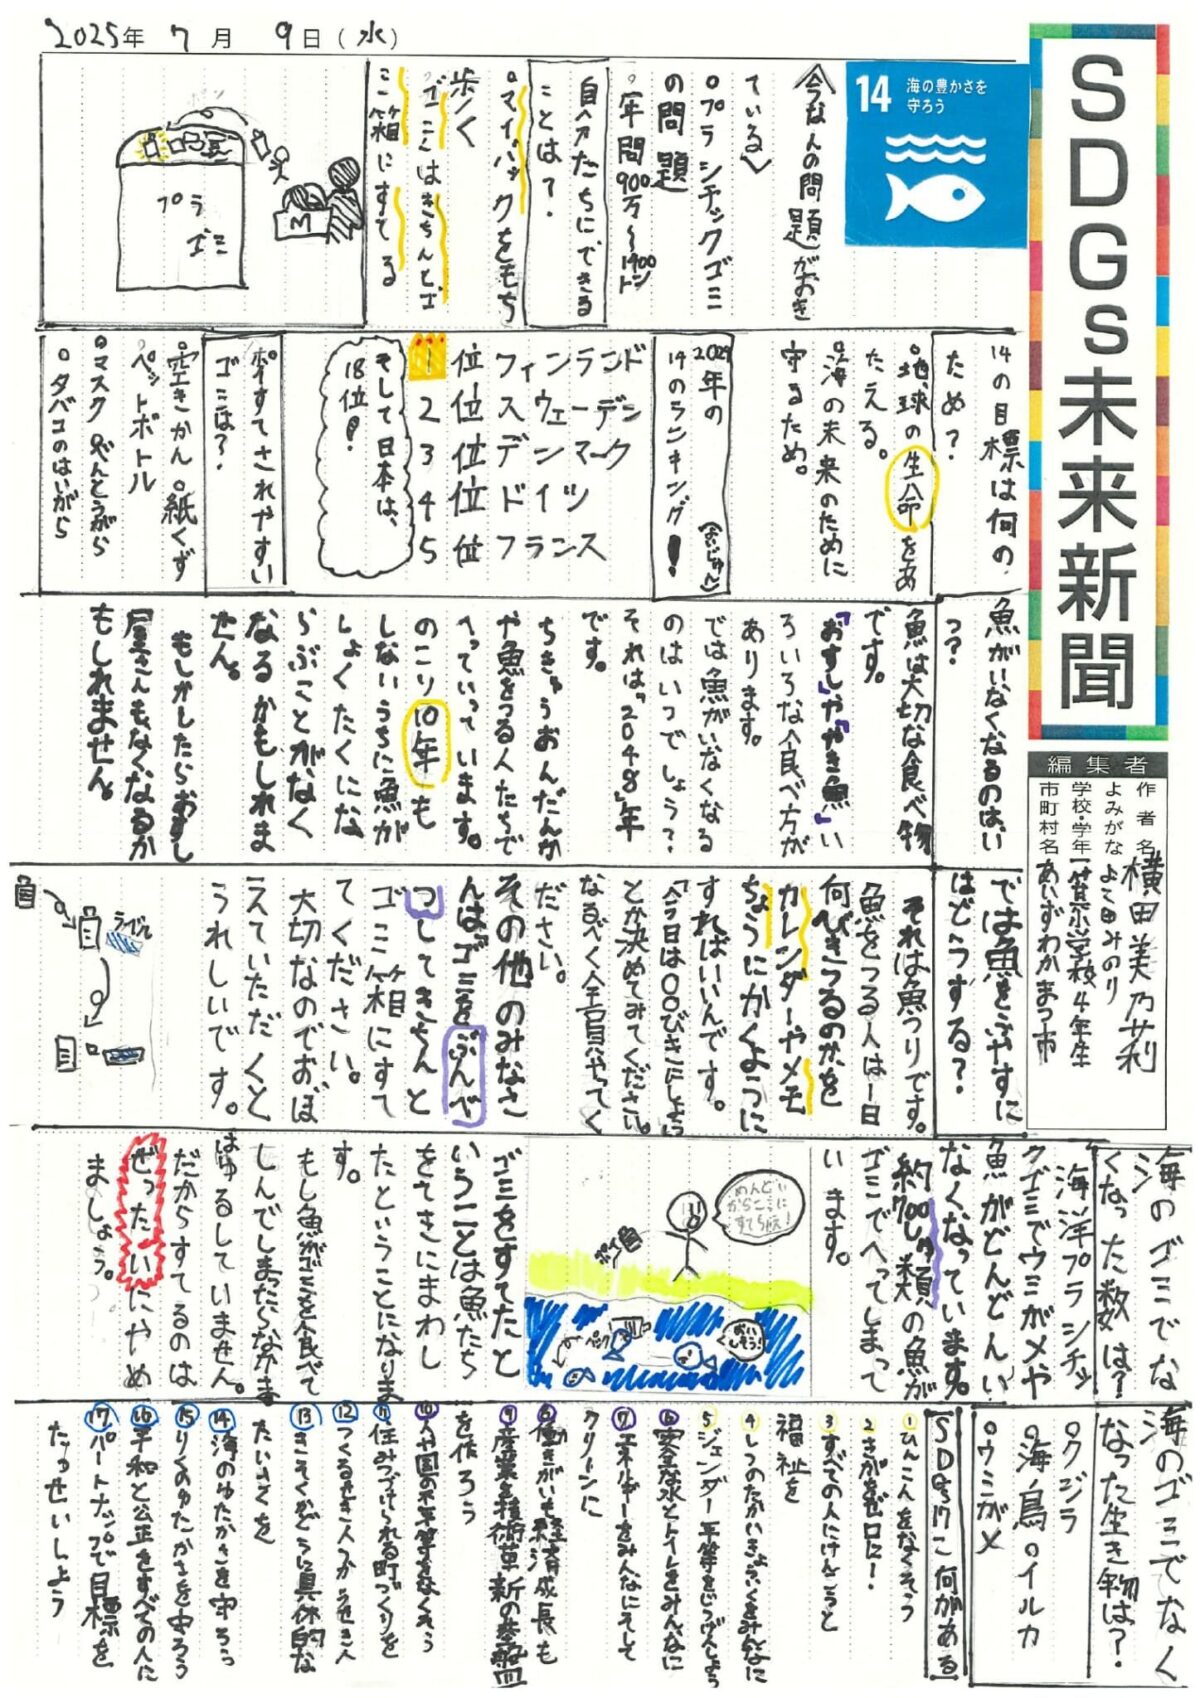 2025年 7月 9日(水)
SDGs未来新聞
編集者
作者名 横田美乃莉
よみがな よこ田みのり
学校・学年 一箕小学校4年生
市町村名 あいずわかまつ市
14 海の豊かさを
守ろう
今なんの問題がおき
ている〉
○プラシチックゴミ
の問題
○年間900万〜1400トン
自分たちにできる
ことは?
○マイバックをもち
歩く
○ゴミはきちんとゴ
ミ箱にすてる
プラ
ゴミ
M
14の目標は何の
ため?
○地球の生命をあ
たえる。
○海の未来のために
守るため。
2024年の
14のランキング!
1位フィンランド
2位スウェーデン
3位デンマーク
4位ドイツ
5位フランス
そして日本は、
18位!
ポイすてされやすい
ゴミは?
○空きかん○紙くず
○ペットボトル
○マスク○べんとうがら
○タバコのはいがら
魚がいなくなるのはい
つ?
魚は大切な食べ物
です。
「おすし」や「やき魚」い
ろいろな食べ方が
あります。
では魚がいなくなる
のはいつでしょう?
それは"2048"年
です。
ちきゅうおんだんか
や魚をつる人たちで
へっていっています。
のこり10年も
しないうちに魚が
しょくたくにな
らぶことがなく
なるかもしれま
せん。
もしかしたらおすし
屋さんもなくなるか
もしれません。
では魚をふやすに
はどうする?
それは魚つりです。
魚をつる人は一日
何びきつるのかを
カレンダーやメモ
ちょうにかくように
すればいいんです。
「今日は〇〇びきにしよう」
とか決めてみてください。
なるべく全員やってく
ださい。
その他のみなさ
んは"ゴミをぶんべ
つしてきちんと
ゴミ箱にすて
てください。
大切なのでおぼ
えていただくと
うれしいです。
海のゴミでな
くなった数は?
海洋プラシチッ
クゴミでウミガメや
魚がどんどんい
なくなっています。
約700しゅ類の魚が
ゴミでへってしまって
います。
めんどい
からここに
すてちゃえ!
ポイ
パクッ
おい
しそう!
ゴミをすてたと
いうことは魚たち
をてきにまわし
たということになりま
す。
もし魚がゴミを食べて
しんでしまったらなかま
はゆるしていません。
だからすてるのは
ぜったいにやめ
ましょう。
海のゴミでなく
なった生き物は?
○クジラ
○海鳥○イルカ
○ウミガメ
SDGs17こ何がある
①ひんこんをなくそう
②きがをゼロに!
③すべての人にけんこうと
福祉を
④しつのたかいきょういくをみんなに
⑤ジェンダー平等をじつげんしよう
⑥安全な水とトイレをみんなに
⑦エネルギーをみんなにそして
クリーンに
⑧働きがいも経済成長も
⑨産業と技術革新の基盤
を作ろう
⑩人や国の不平等をなくそう
⑪住みつづけられる町づくりを
⑫つくるせき人つかうせき人
⑬きこうへんどうに具体的な
たいさくを
⑭海のゆたかさを守ろう
⑮りくのゆたかさを守ろう
⑯平和と公正をすべての人に
⑰パートナップで目標を
たっせいしよう